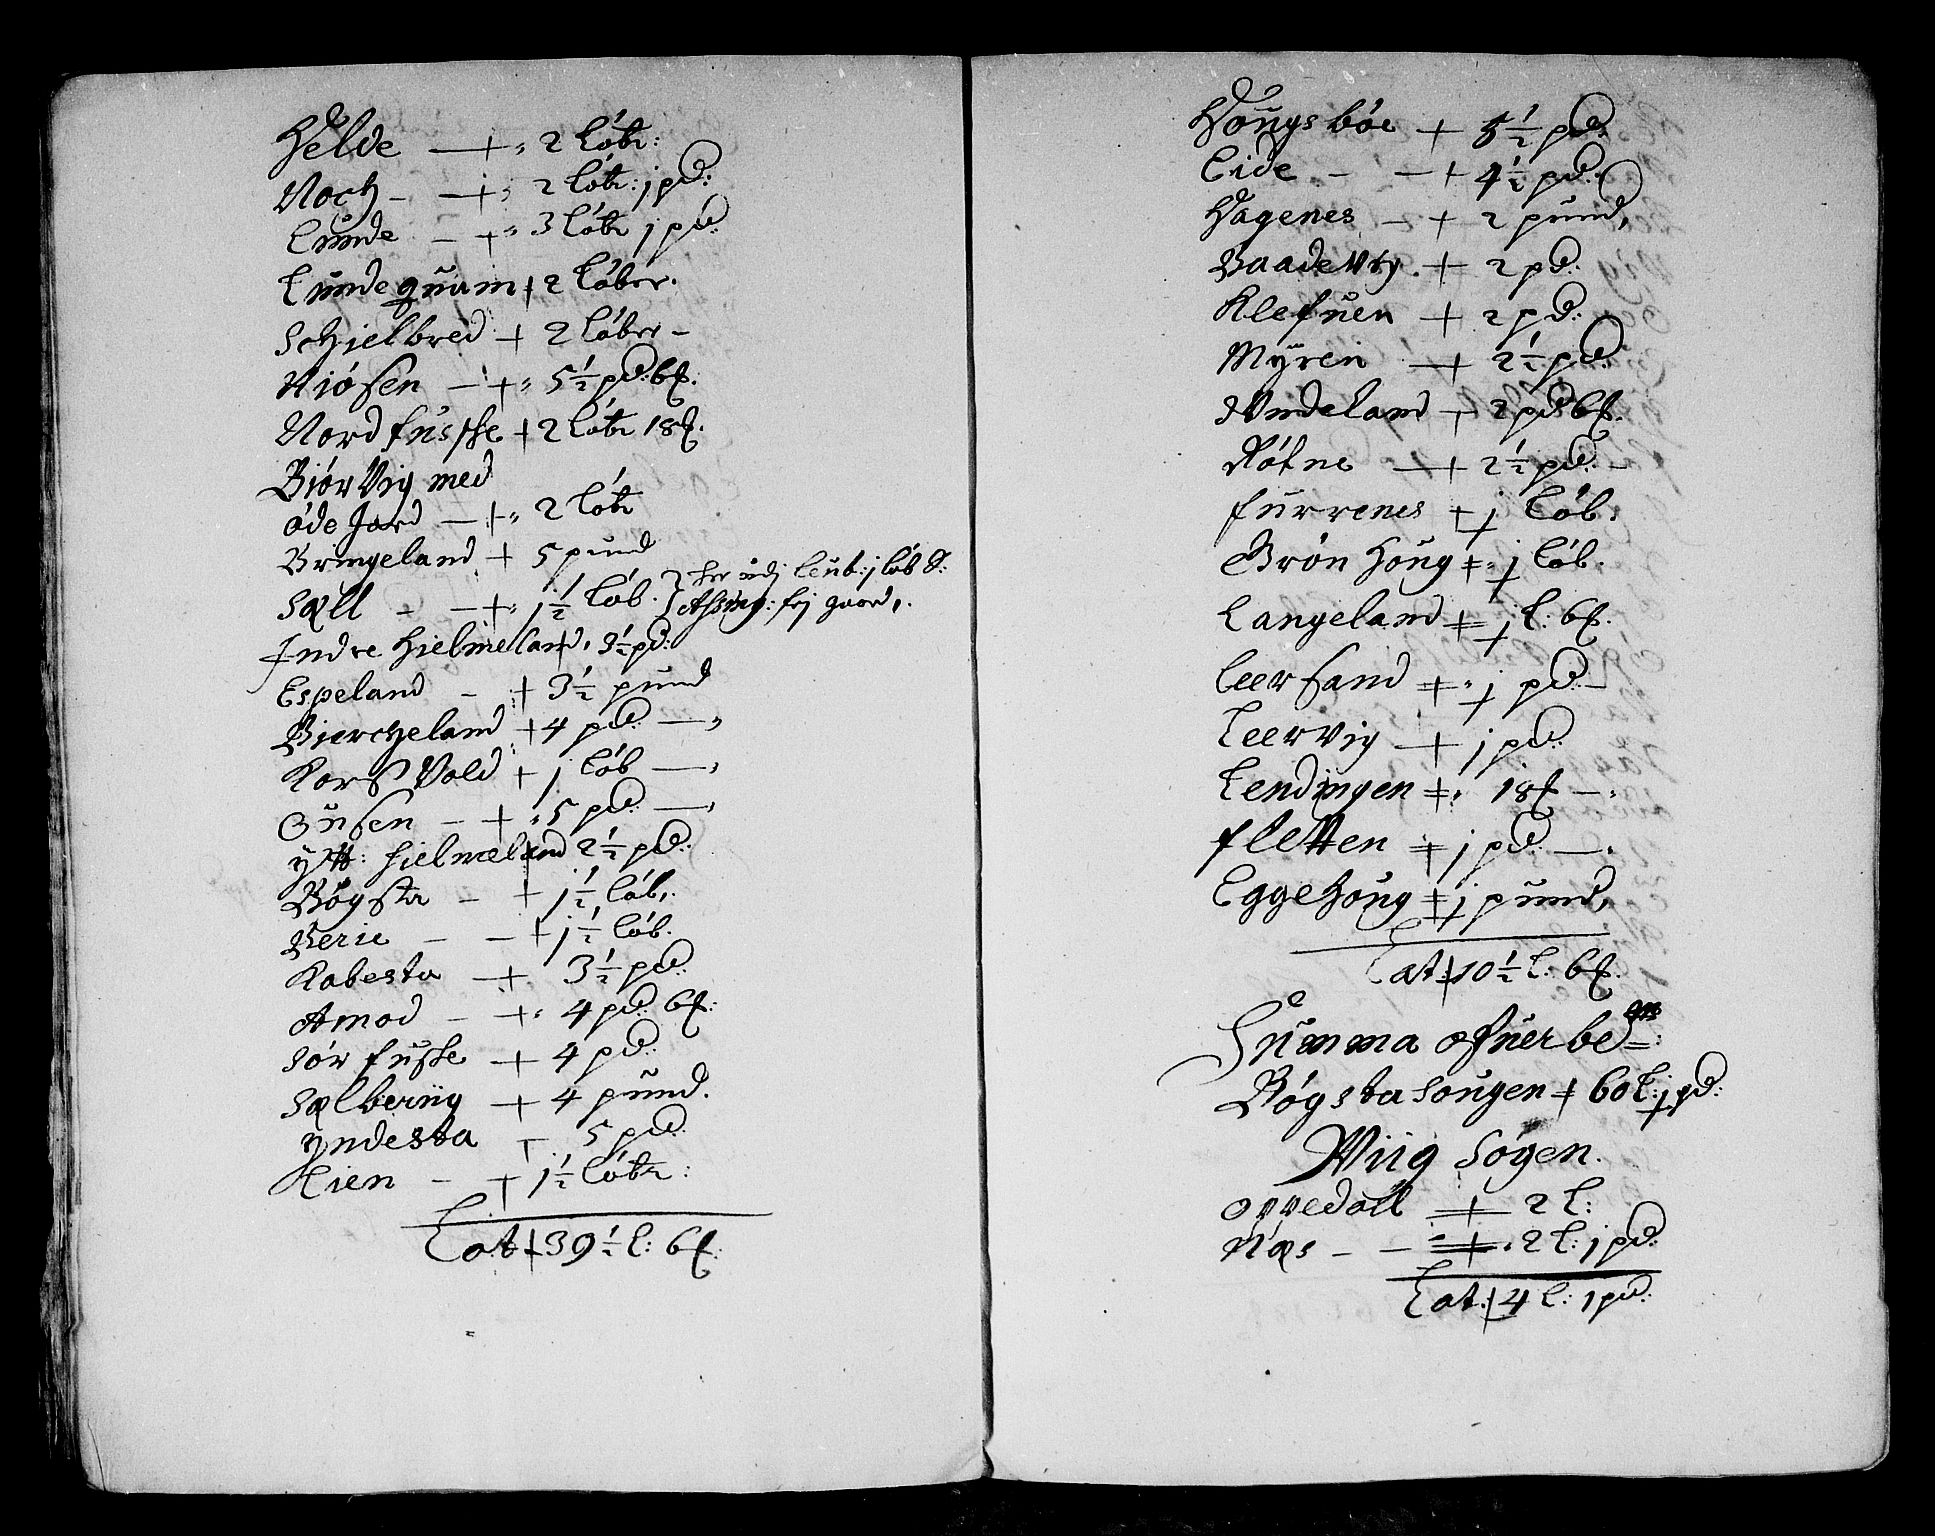 Helde — + 2 løbr:
Noch - — + 2 løbr: j pd:
Lunde — + 3 løbr j pd:
Lundequam + 2 løber.
Schielbred + 2 løber -
Kiøsen — + 5½ pd: 6 ℔.
Nordfusse + 2 løbr 18 ℔.
Biør Vig med
øde Jord — + 2 løbr
Bringeland + 5 pund
Sæll - — + j½ løb. her udj Leub: j løb S:
gaard,.
Indre Hielmeland. 3½ pd:
Espeland - + 3½ pund
Biercheland + 4 pd: —
Kors Vold + j løb —
Gusen - + 5 pd: —
ytt: Hielmeland 2½ pd:
Bøgsta - + j½ løb.
Berie - - + j½ løb.
Kabesta — + 3½ pd:
Amod - — + 4 pd: 6 ℔:
Sør fusse — + 4 pd:
Sælberiig — + 4 pund.
yndesta + 5 pd:
Lien - + 1½ løbr:
Lat + 39½ l: 6 ℔:
Hougsbøe + 5½ pd:
Eide - — + 4½ pd:
Hagenes — + 2 pund,
Baadevig. + 2 pd:
Klefuen + 2 pd:
Myren — + 2½ pd:
Vndeland + 2 pd 6 ℔.
Røtne — + 2½ pd: -
furrenes + j løb.
Grøn Houg + j løb.
Langeland + j l: 6 ℔.
Leersand + j pd: -
Leervig — + j pd:
Lendingen + 18 ℔ —
fletten + j pd: —
Eggehoug + j pund,
Lat: + 10½ l: 6 ℔.
Summa ofuer be:
Bøgsta Sougen + 60 l: j pd:
Wiig Sogen.
Oppedall + 2 l:
Næs - - + 2 l: j pd:
Lat: + 4 l: 1 pd: